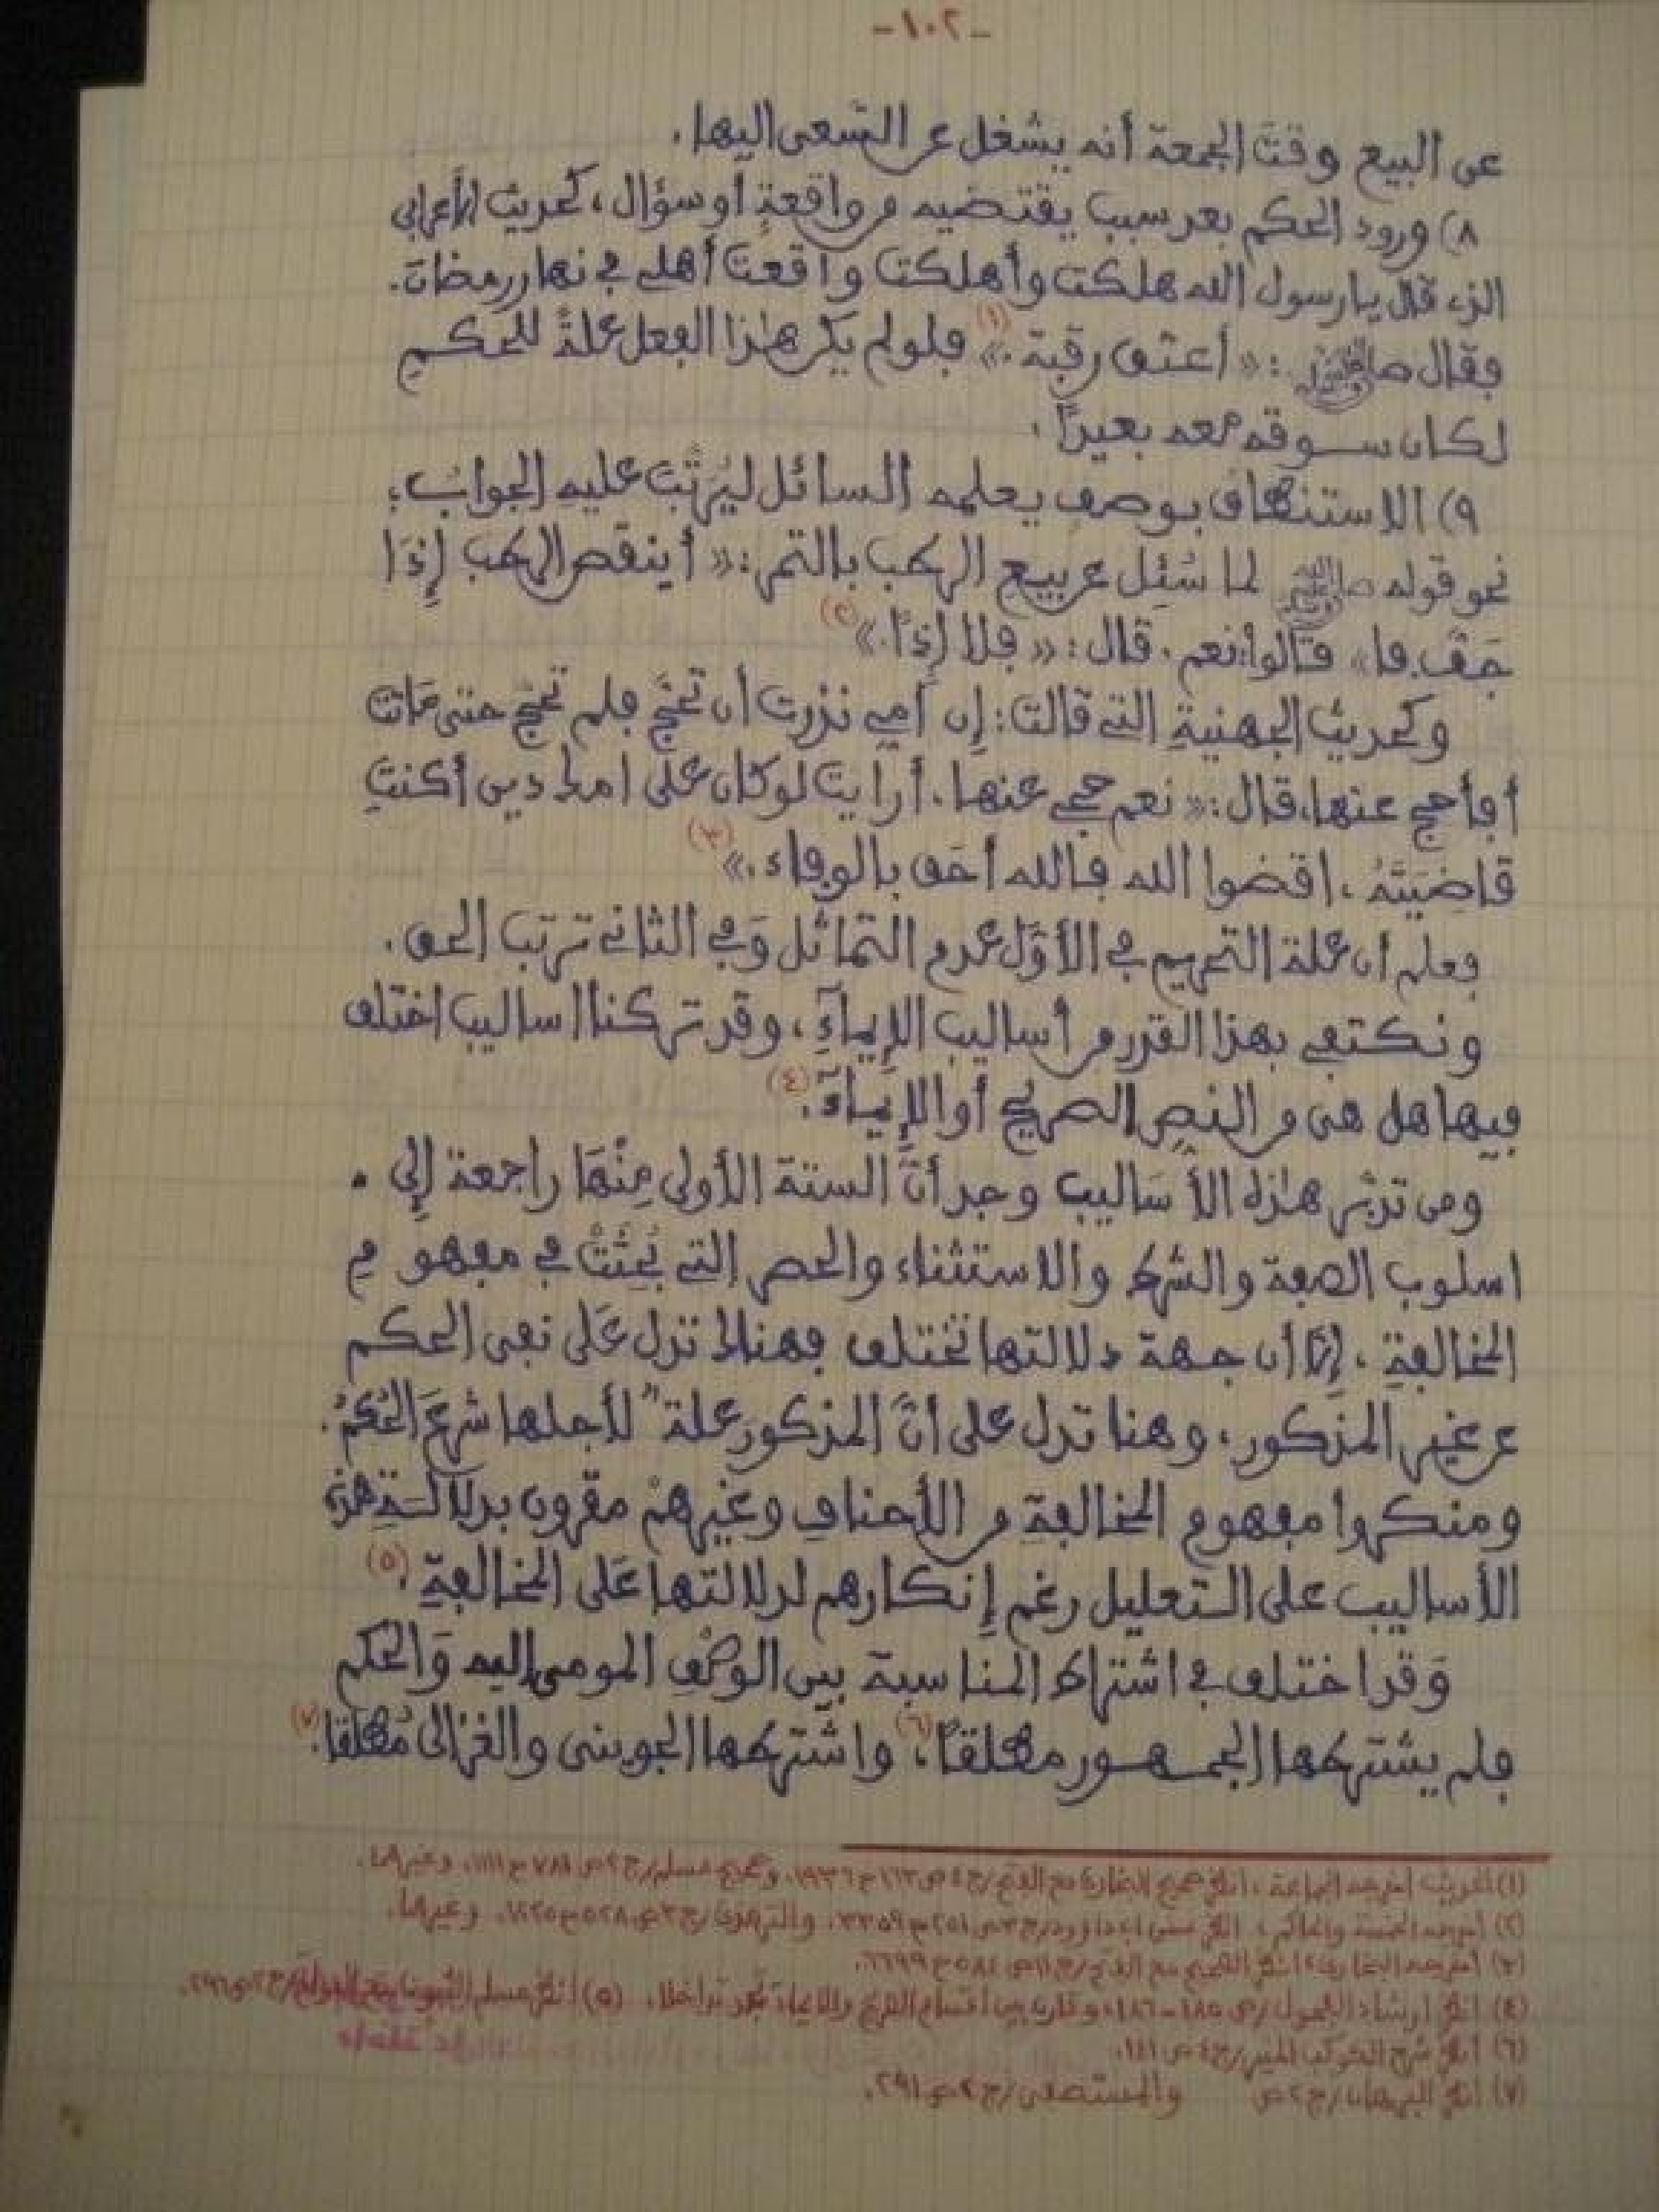 -١٠٢-
عن البيع وقت الجمعة أنه يشغل عن السعي إليها.
٨) ورود الحكم بعد سبب يقتضيه من واقعةٍ أو سؤال، كحديث الأعرابي
الذي قال يا رسول الله هلكت وأهلكت واقعت أهلي في نهار رمضان.
فقال صلى الله عليه وسلم: «أعتق رقبة.»(١) فلو لم يكن هذا الفعل علةً للحكمِ
لكان سوقه معه بعيداً.
٩) الاستنطاق بوصف يعلمه السائل ليُرتَّبَ عليه الجوابُ؛
نحو قوله صلى الله عليه وسلم لما سُئِل عن بيعِ الرطب بالتمر: «أينقص الرطب إِذَا
جَفَّ.ف» قالوا: نعم. قال: «فلا إِذًا.»(٢)
وكحديث الجهنيةِ التي قالت: إن أمي نذرت أن تحجَّ فلم تحجَّ حتى مَاتت
أفأحج عنها، قال: «نعم حجي عنها. أرأيت لو كان على أمك دين أكنتِ
قاضيَتَهُ، اقضوا الله فالله أحَق بالوفاء.»(٣)
فعلم أن علة التحريم في الأوَّل عدم التماثل وَفي الثاني ترتب الحق.
ونكتفي بهذا القدر من أساليب الإيمآءِ، وقد تركنا اساليب اختلف
فيها هل هي من النصِ الصريح أو الإيمآءَ.(٤)
ومن تدبّر هذه الأسَاليب وجد أنَّ الستة الأولى مِنْهَا راجعة إلى
اسلوب الصفة والشرط والاستثناء والحصر التي بُحِثَتْ في مفهومِ
المخالفةِ، إلّا أن جهة دلالتها تختلف فهناك تدل عَلى نفي الحكم
عن غيرِ المذكور، وهنا تدل على أنَّ المذكور علة لأجلها شرعَ الحُكمُ.
ومنكروا مفهوم المخالفةِ من الأحنافِ وغيرهمْ مقرون بدلالةِ هذه
الأساليب على التعليل رغم إِنكارهم لدلالتها عَلى المخالفةِ.(٥)
وَقد اختلف في اشتراط المناسبة بين الوصْفِ المومى إليه وَالحكم
فلم يشترطها الجمهور مطلقاً(٦)، واشترطها الجويني والغزالى مُطلقا.(٧)
(١) الحديث أخرجه الجماعة، انظر صحيح البخاري مع الفتح/ج٤ص١٦٣ح١٩٣٦، وصحيح مسلم/ج٢ص٧٨١ح١١١١، وغيرها.
(٢) أخرجه الخمسة والحاكم، انظر سنن ابي داوود/ج٣ص٢٥١ح٣٣٥٩، والترمذي/ج٣ص٥٢٨ح١٢٢٥، وغيرها.
(٣) أخرجه البخاري، انظر الصحيح مع الفتح/ج١١ص٥٨٤ح٦٦٩٩.
(٤) انظر إرشاد الفحول/ص١٨٥-١٨٦، وقارن بين أقسام الصريح والإيماء تجد تداخلا. (٥) انظر مسلم الثبوت /ج٢ص٢٩٦.
(٦) أنظر شرح الكوكب المنير/ج٤ص١٤١.
(٧) انظر البرهان/ج٢ص والمستصفى/ج٢ص٢٩١.